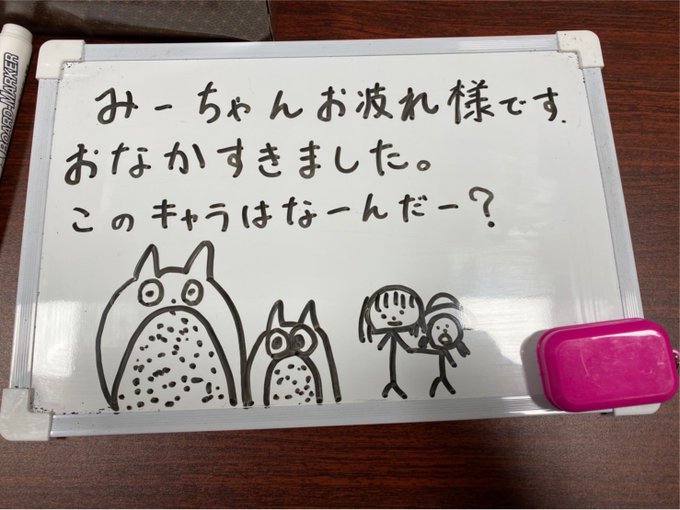 みーちゃんお疲れ様です.
おなかすきました。
このキャラはなーんだー?
BOARD-MARKER